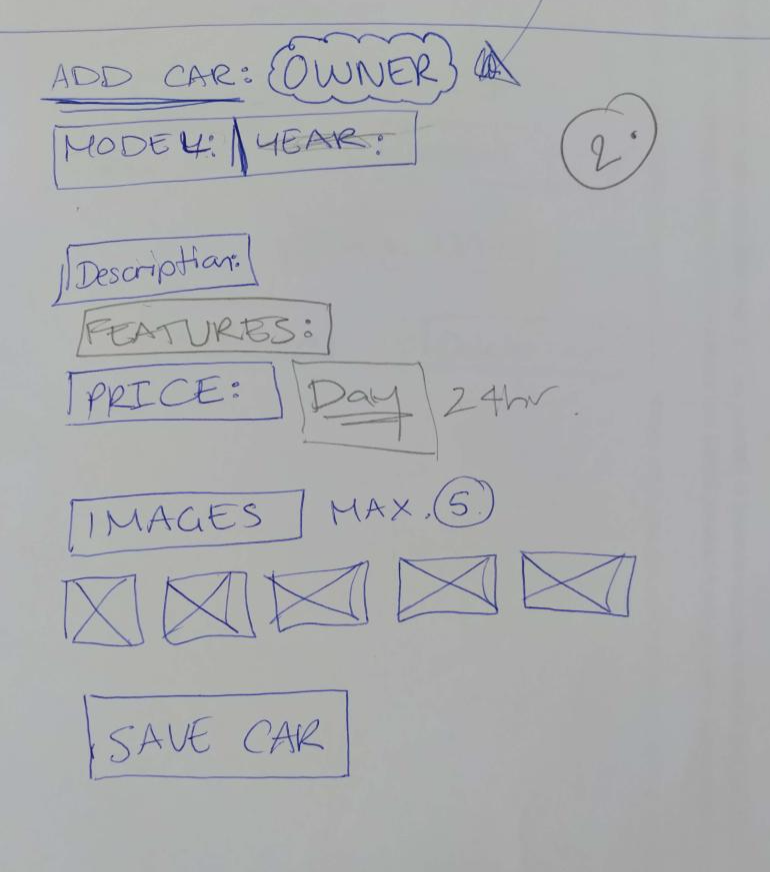 ADD CAR: OWNER
MODEL: YEAR:
2.
Description:
FEATURES:
PRICE: Day 24hr.
IMAGES MAX. 5
SAVE CAR